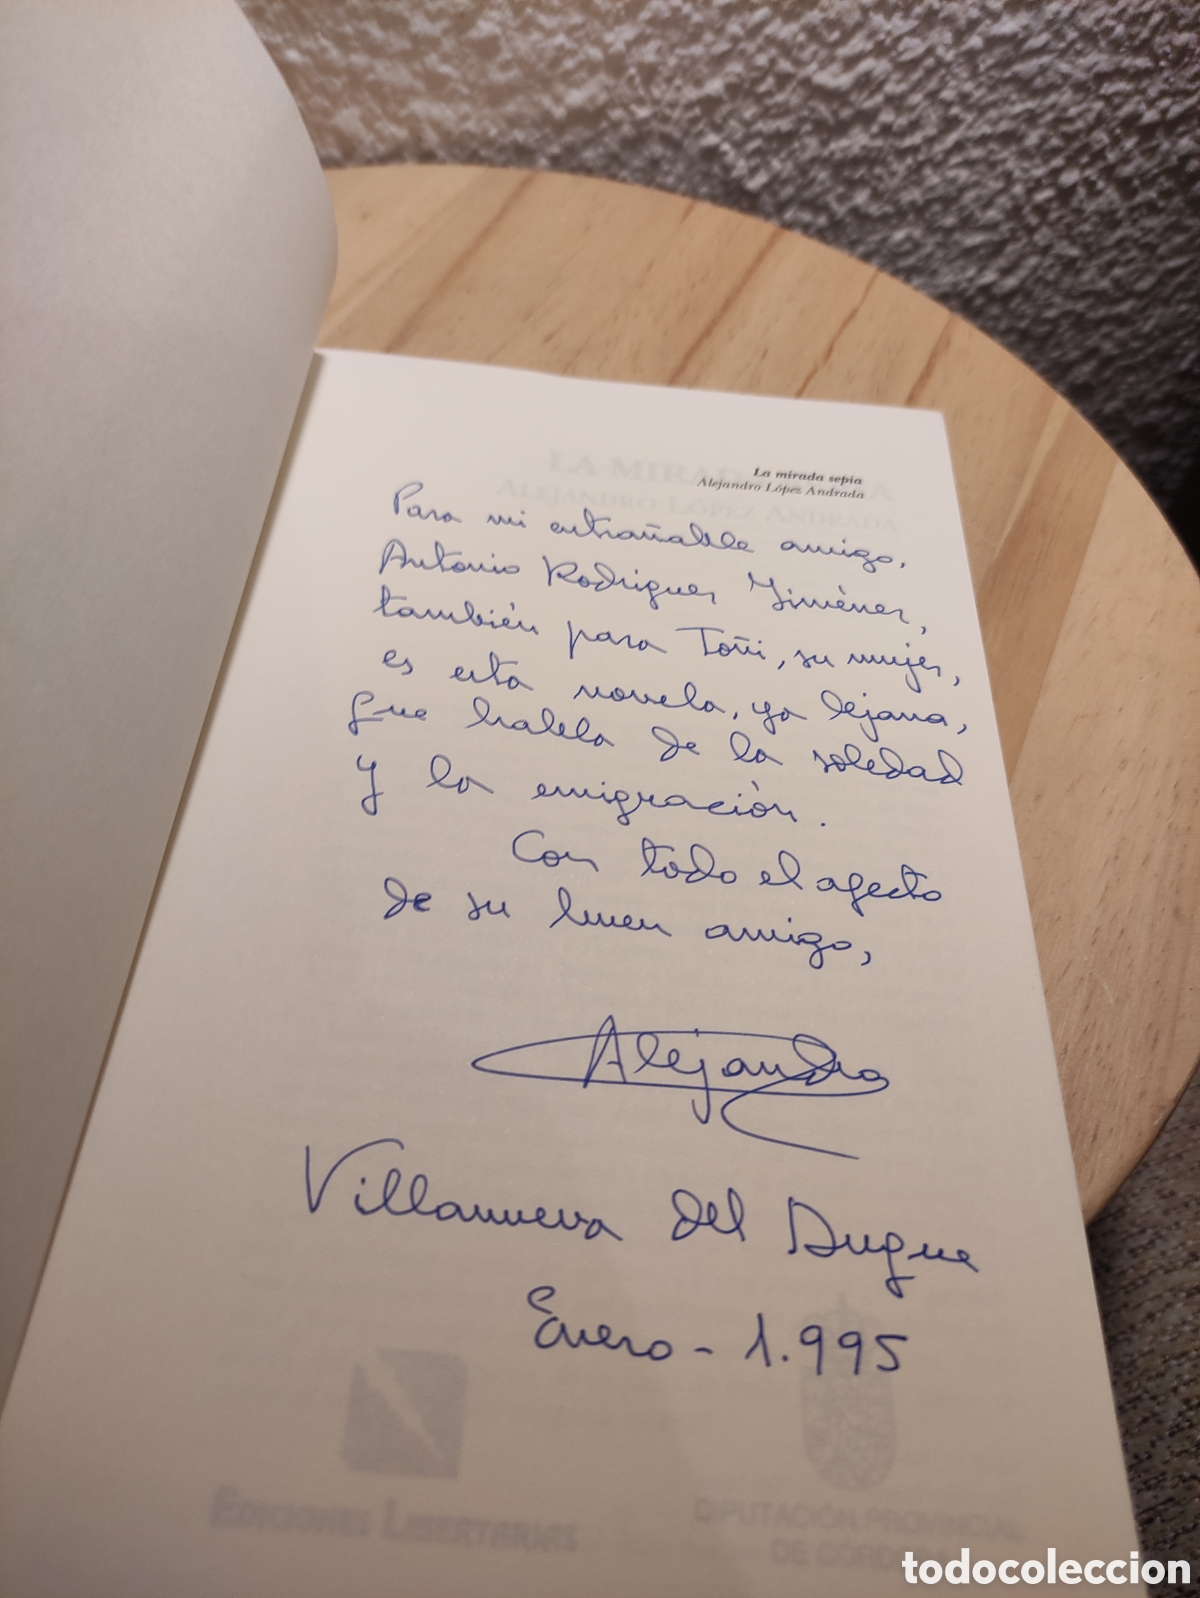 La mirada sepia
Alejandro López Andrada
LA MIRADA SEPIA
ALEJANDRO LÓPEZ ANDRADA
Para mi entrañable amigo,
Antonio Rodriguez Jiménez,
también para Toñi, su mujer,
es esta novela, ya lejana,
que habla de la soledad
y la emigración.
Con todo el afecto
de su buen amigo,
Alejandro
Villanueva del Duque
Enero - 1.995
EDICIONES LIBERTARIAS
DIPUTACIÓN PROVINCIAL
DE CÓRDOBA
todocoleccion